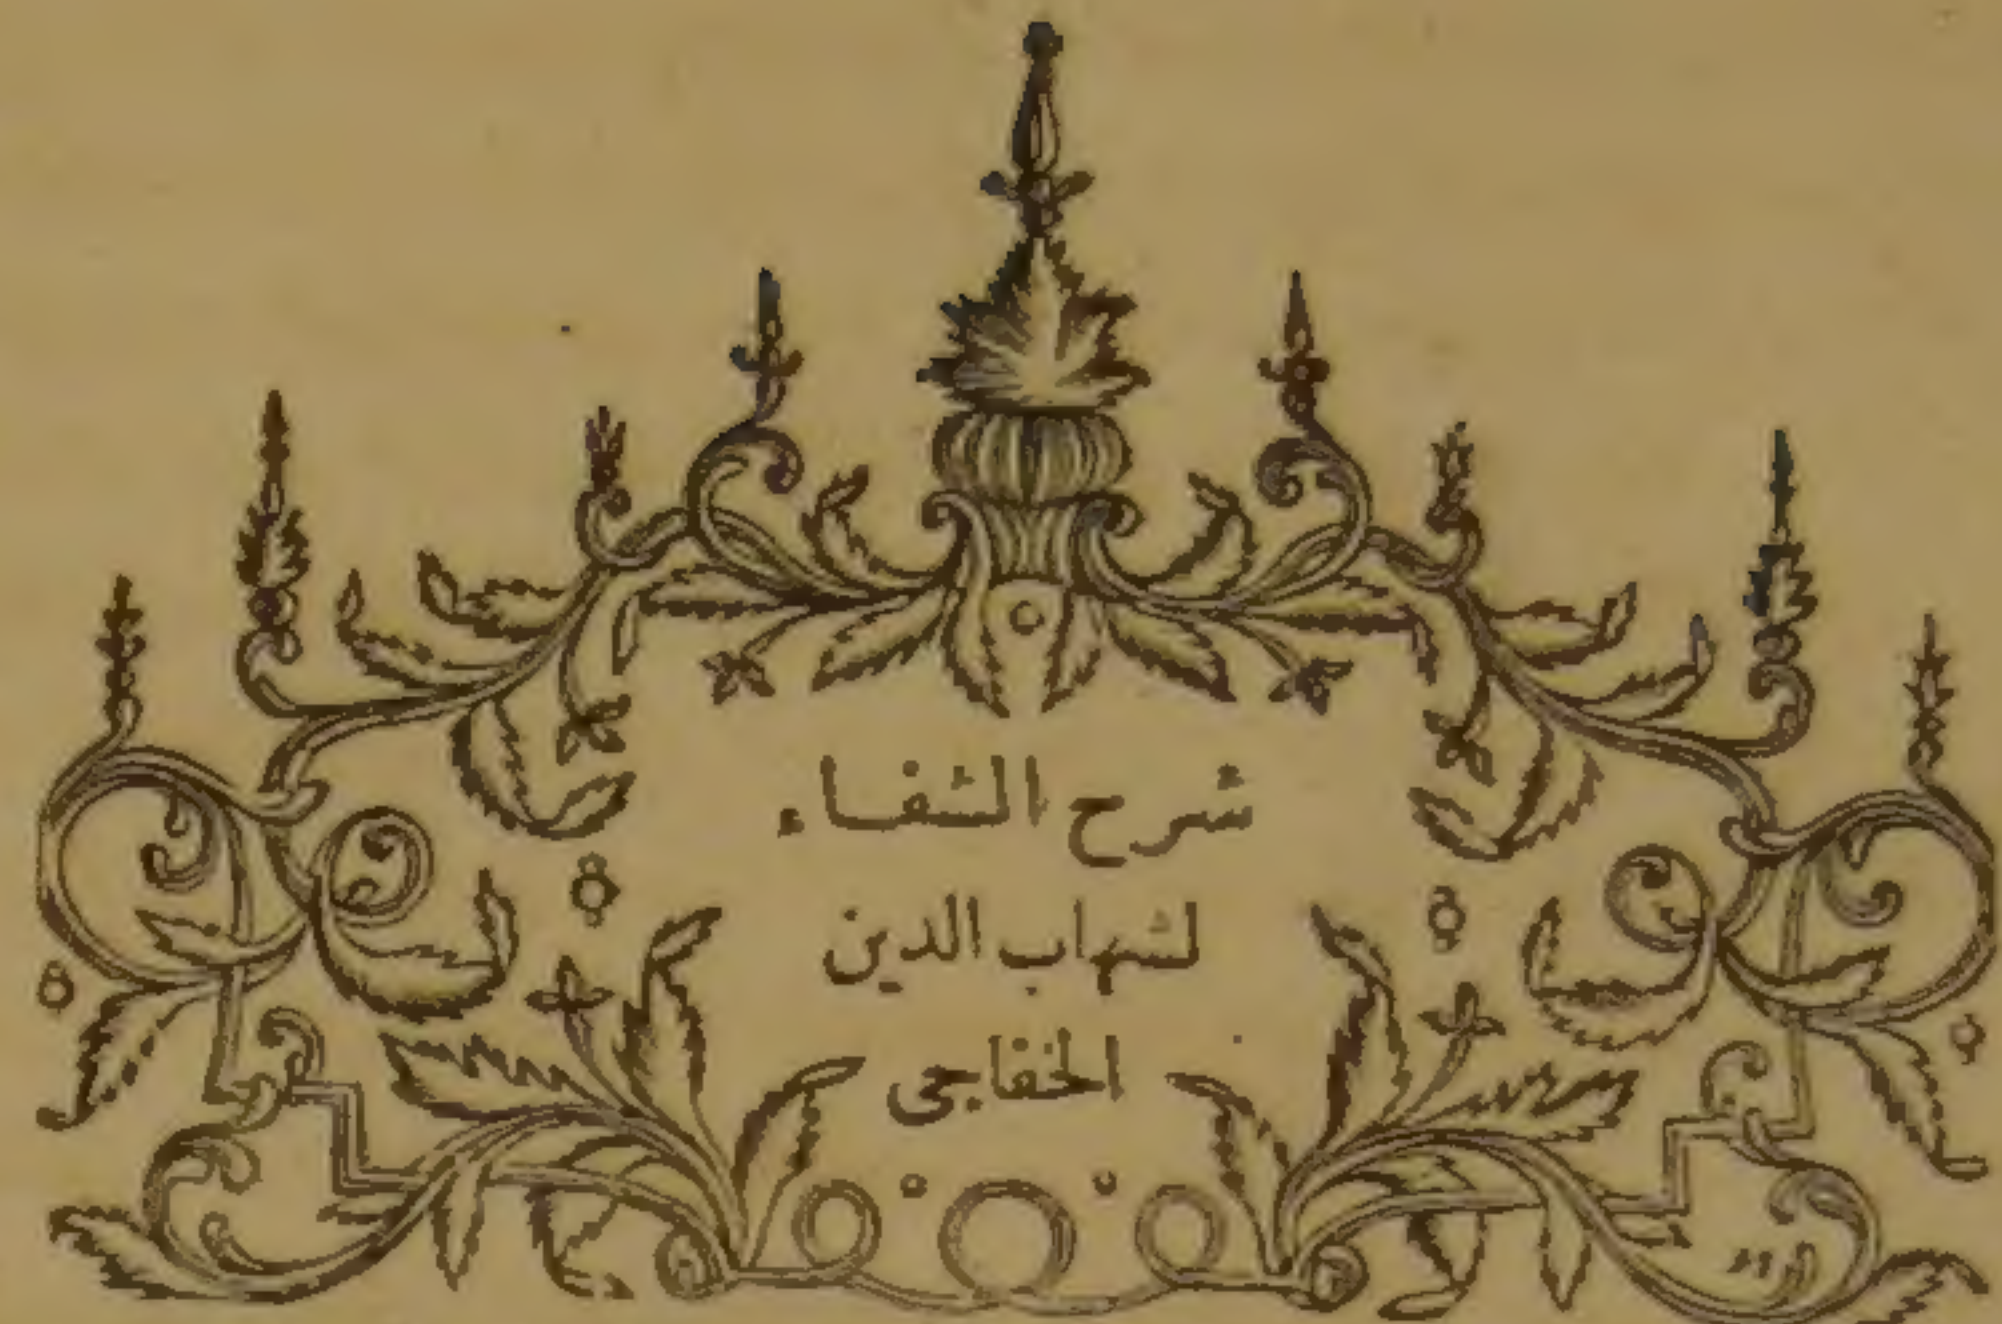 شرح الشفاء
لشهاب الدين
الخفاجى